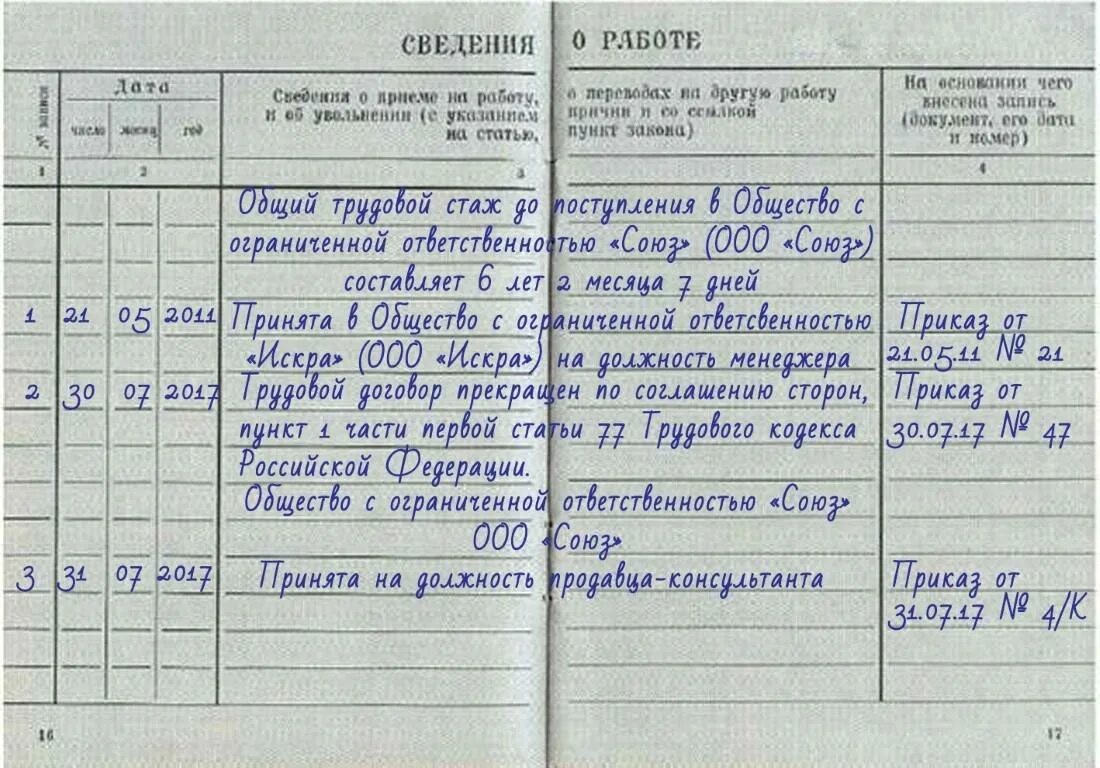 СВЕДЕНИЯ О РАБОТЕ
№ записи
Дата
число месяц год
Сведения о приеме на работу,
и об увольнении (с указанием
на статью,
о переводах на другую работу
причин и со ссылкой
пункт закона)
На основании чего
внесена запись
(документ, его дата
и номер)
1 2 3 4
Общий трудовой стаж до поступления в Общество с
ограниченной ответственностью «Союз» (ООО «Союз»)
составляет 6 лет 2 месяца 7 дней
1 21 05 2011 Принята в Общество с ограниченной ответсвенностью Приказ от
«Искра» (ООО «Искра») на должность менеджера 21.05.11 № 21
2 30 07 2017 Трудовой договор прекращен по соглашению сторон, Приказ от
пункт 1 части первой статьи 77 Трудового кодекса 30.07.17 № 47
Российской Федерации.
Общество с ограниченной ответственностью «Союз»
ООО «Союз»
3 31 07 2017 Принята на должность продавца-консультанта Приказ от
31.07.17 № 4/К
16 17